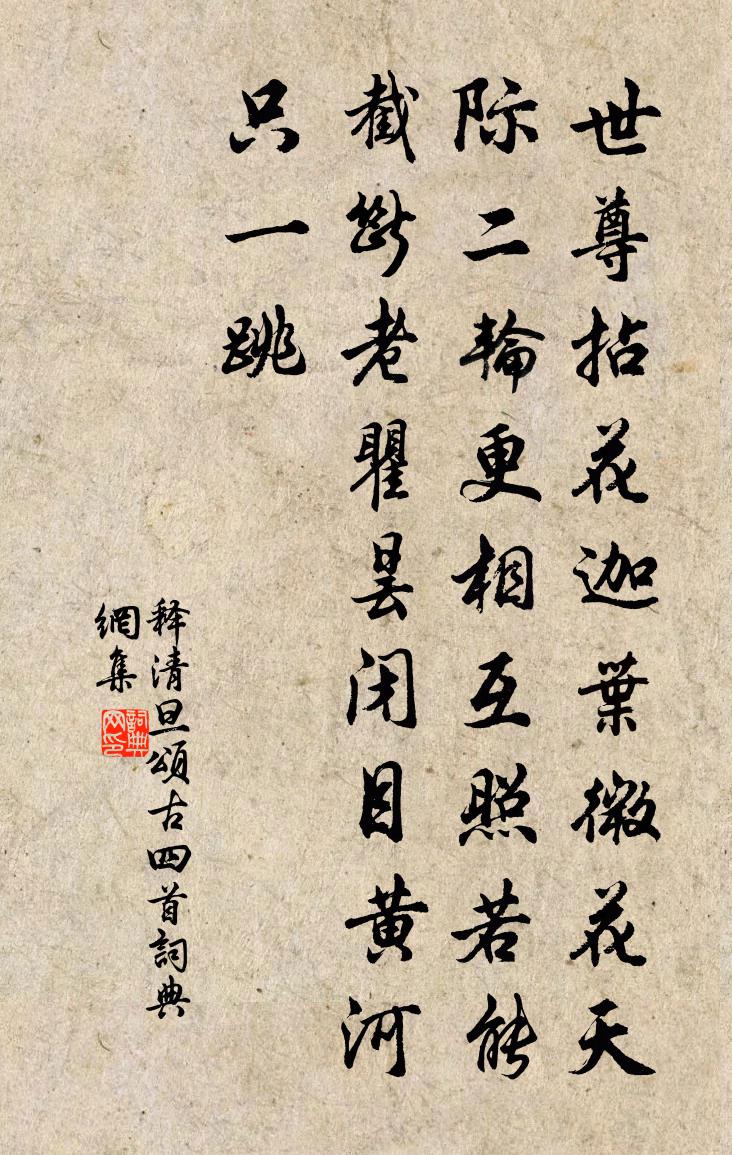 世尊拈花迦葉微花天
际二輪更相互照若能
截断老瞿昙闭目黄河
只一跳
释清旦頌古四首詞典
網集
詞典网印